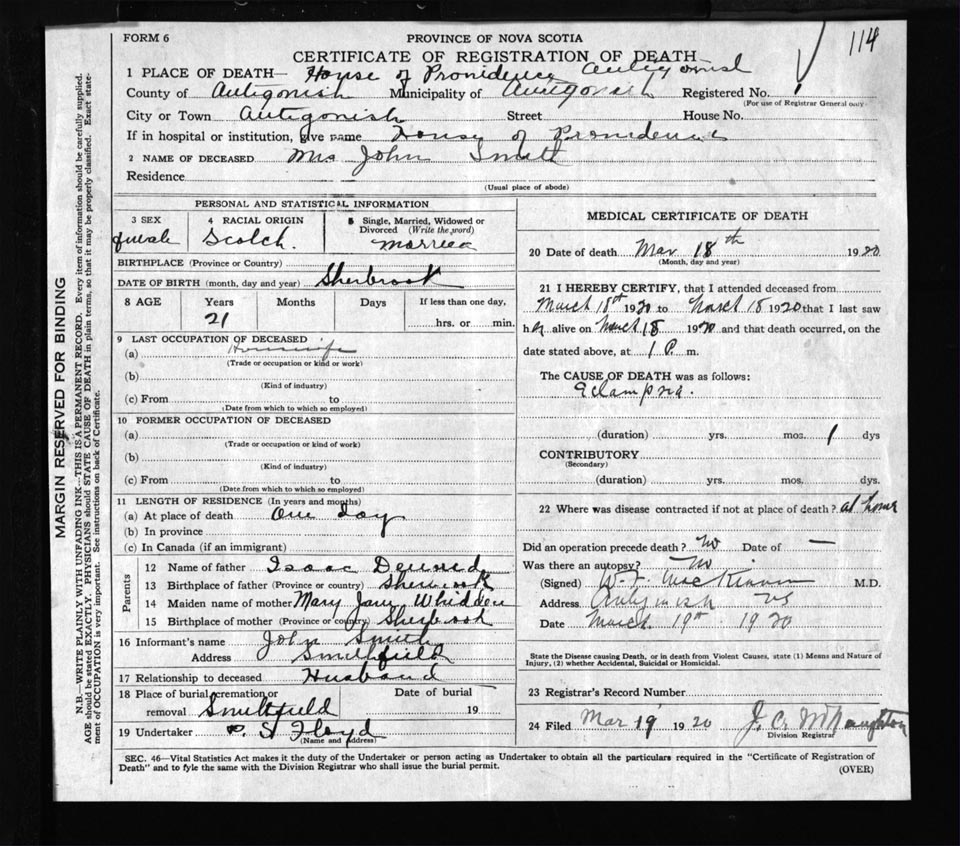 FORM 6
PROVINCE OF NOVA SCOTIA
114
CERTIFICATE OF REGISTRATION OF DEATH
1 PLACE OF DEATH— House of Providence Antigonish
County of Antigonish Municipality of Antigonish Registered No. 1
(For use of Registrar General only)
City or Town Antigonish Street House No.
If in hospital or institution, give name House of Providence
2 NAME OF DECEASED Mrs John Smith
Residence
(Usual place of abode)
PERSONAL AND STATISTICAL INFORMATION
3 SEX female
4 RACIAL ORIGIN Scotch.
5 Single, Married, Widowed or Divorced (Write the word) Married
BIRTHPLACE (Province or Country)
DATE OF BIRTH (month, day and year) Sherbrook
8 AGE Years Months Days If less than one day,
21 hrs. or min.
9 LAST OCCUPATION OF DECEASED
(a) Housewife
(Trade or occupation or kind or work)
(b)
(Kind of industry)
(c) From to
(Date from which to which so employed)
10 FORMER OCCUPATION OF DECEASED
(a)
(Trade or occupation or kind of work)
(b)
(Kind of industry)
(c) From to
(Date from which to which so employed)
11 LENGTH OF RESIDENCE (In years and months)
(a) At place of death One day
(b) In province
(c) In Canada (if an immigrant)
Parents
12 Name of father Isaac
13 Birthplace of father (Province or country) Sherbrook
14 Maiden name of mother Mary Jane Whidden
15 Birthplace of mother (Province or country) Sherbrook
16 Informant's name John Smith
Address Smithfield
17 Relationship to deceased Husband
18 Place of burial, cremation or removal Smithfield Date of burial 19
19 Undertaker P. S. Floyd
(Name and address)
MEDICAL CERTIFICATE OF DEATH
20 Date of death Mar 18th 1920
(Month, day and year)
21 I HEREBY CERTIFY, that I attended deceased from
March 18th 1920 to March 18 1920 that I last saw
her alive on March 18 1920 and that death occurred, on the
date stated above, at 1 P. m.
The CAUSE OF DEATH was as follows:
Eclampsia.
(duration) yrs. mos. 1 dys
CONTRIBUTORY
(Secondary)
(duration) yrs. mos. dys.
22 Where was disease contracted if not at place of death? at home
Did an operation precede death? No Date of —
Was there an autopsy? No
(Signed) W. F. MacKinnon M.D.
Address Antigonish NS
Date March 19th 1920
State the Disease causing Death, or in death from Violent Causes, state (1) Means and Nature of
Injury, (2) whether Accidental, Suicidal or Homicidal.
23 Registrar's Record Number
24 Filed Mar 19 1920 J. C. McNaughton
Division Registrar
SEC. 46—Vital Statistics Act makes it the duty of the Undertaker or person acting as Undertaker to obtain all the particulars required in the "Certificate of Registration of
Death" and to fyle the same with the Division Registrar who shall issue the burial permit.
(OVER)
MARGIN RESERVED FOR BINDING
N.B.—WRITE PLAINLY WITH UNFADING INK—THIS IS A PERMANENT RECORD. Every item of information should be carefully supplied.
AGE should be stated EXACTLY. PHYSICIANS should STATE CAUSE OF DEATH in plain terms, so that it may be properly classified. Exact state-
ment of OCCUPATION is very important. See instructions on back of Certificate.